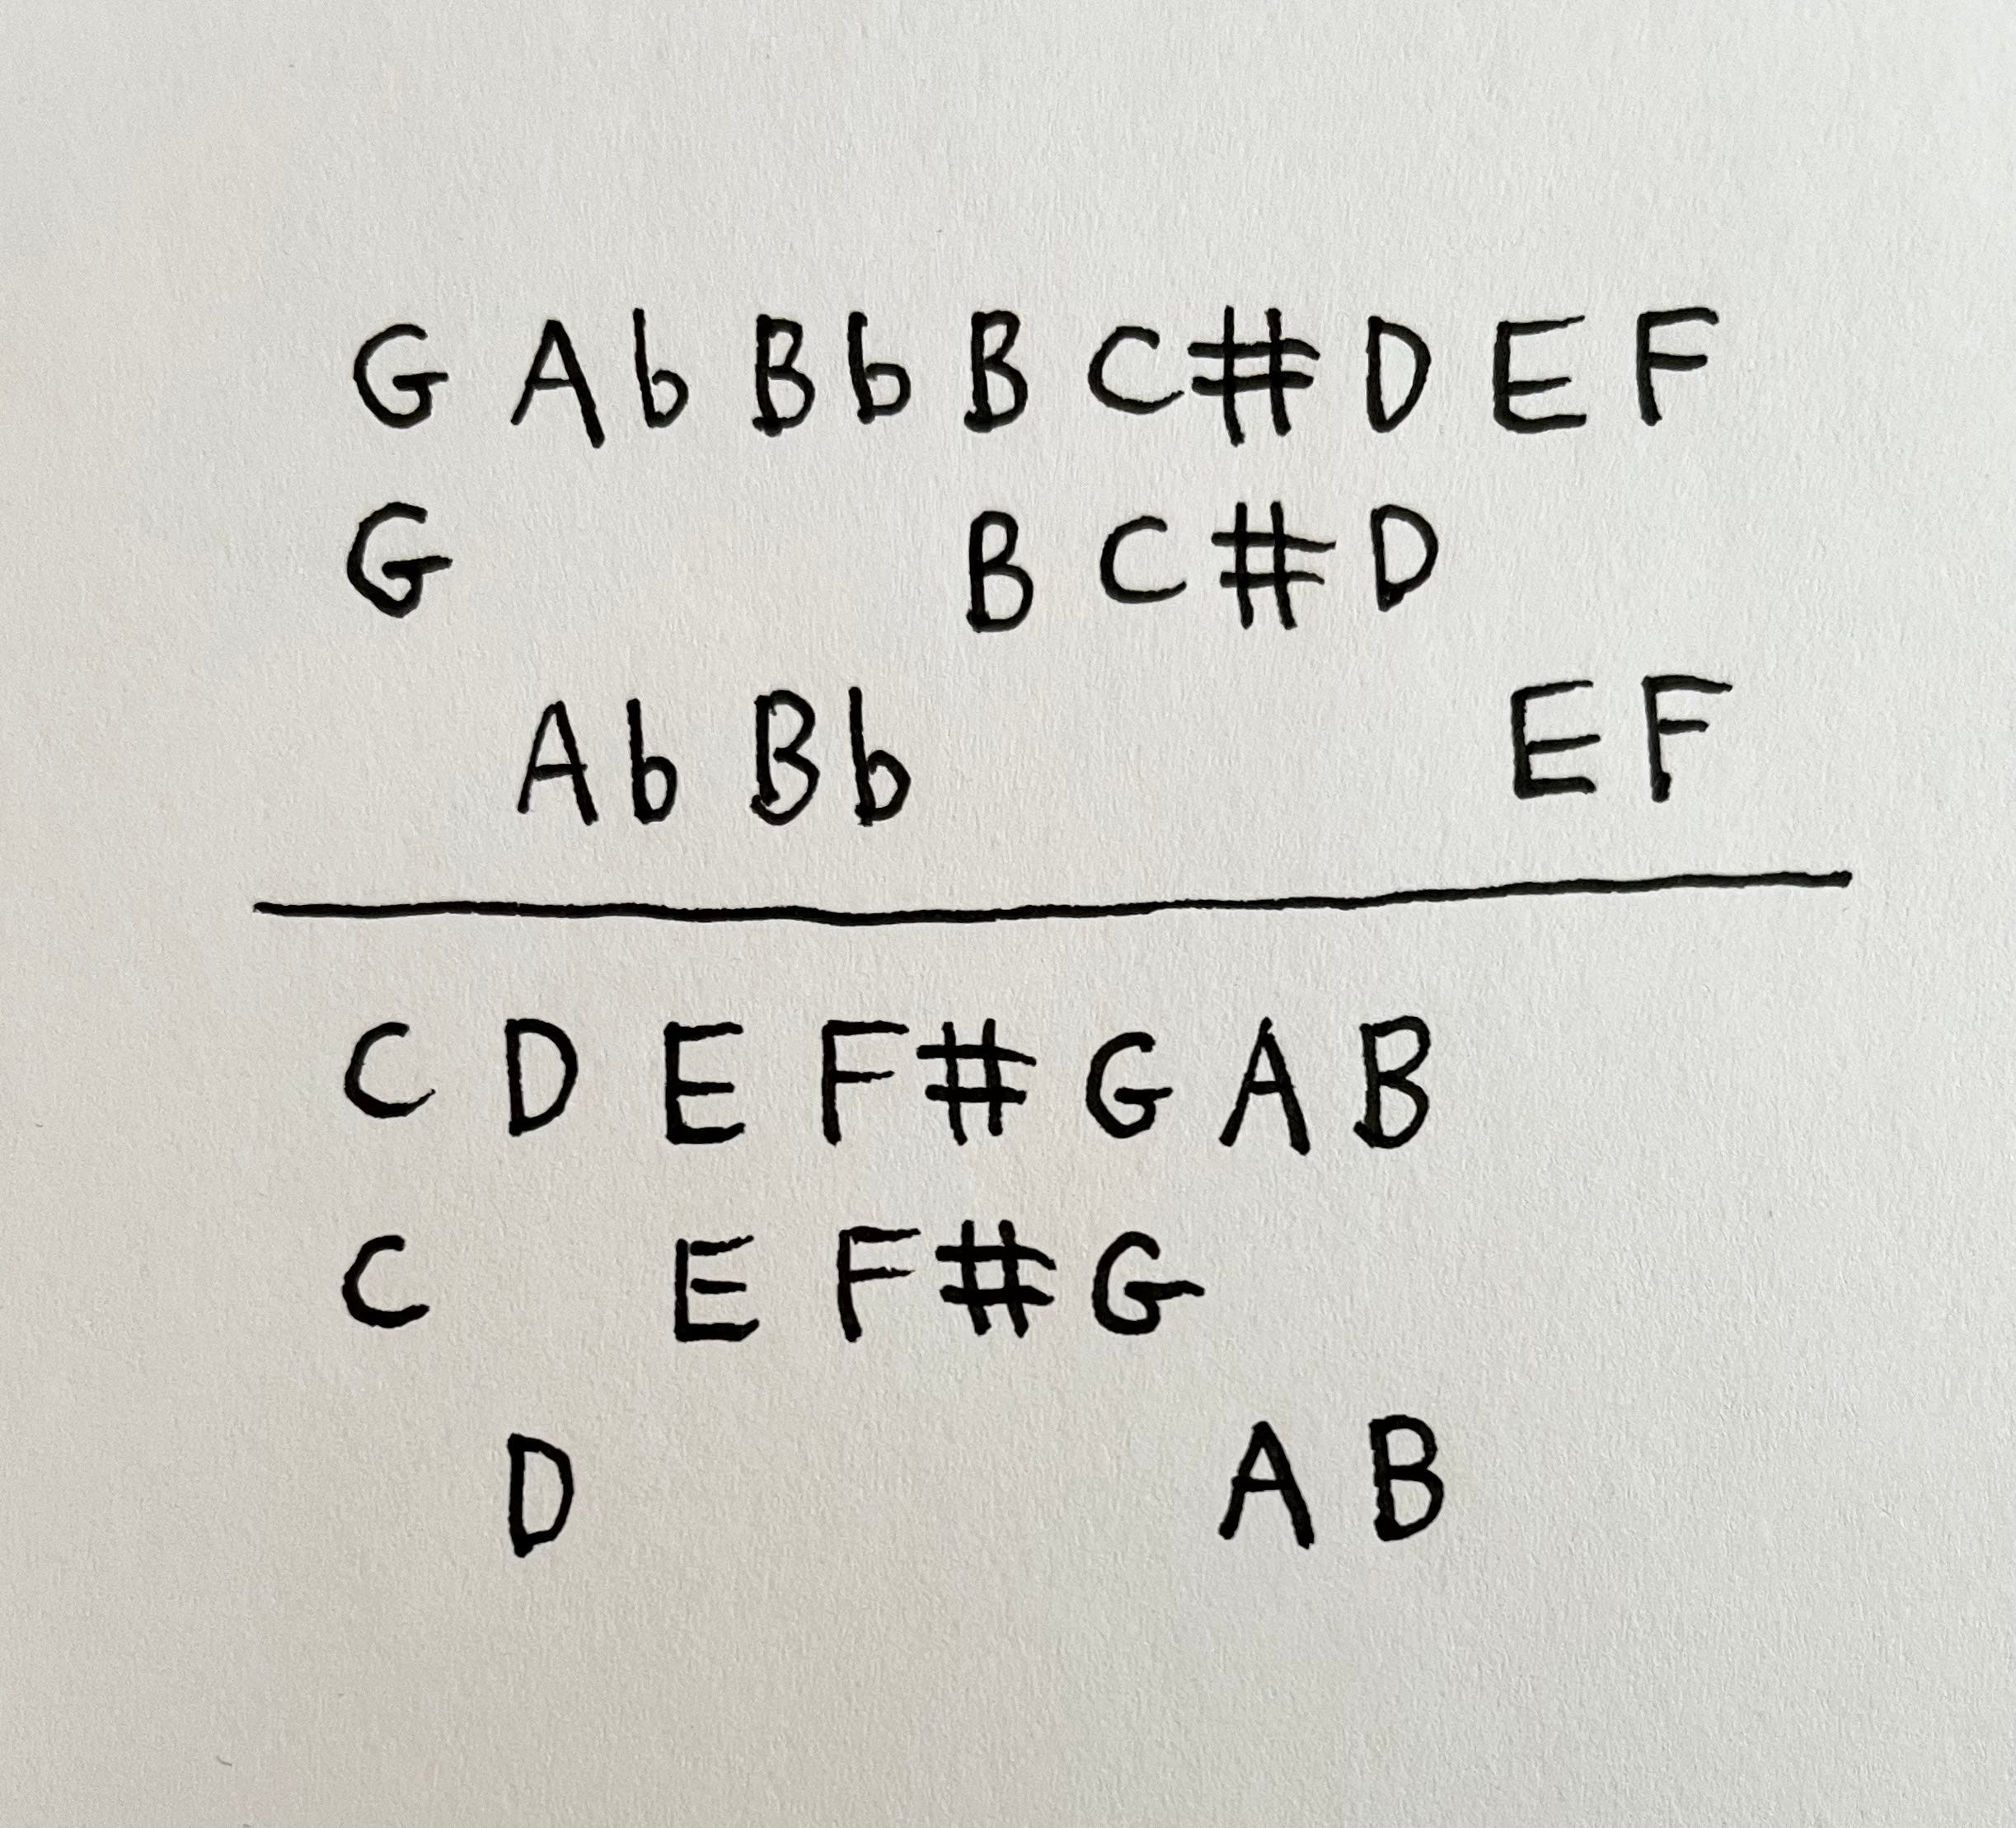 G Ab Bb B C# D E F
G B C# D
Ab Bb E F
C D E F# G A B
C E F# G
D A B